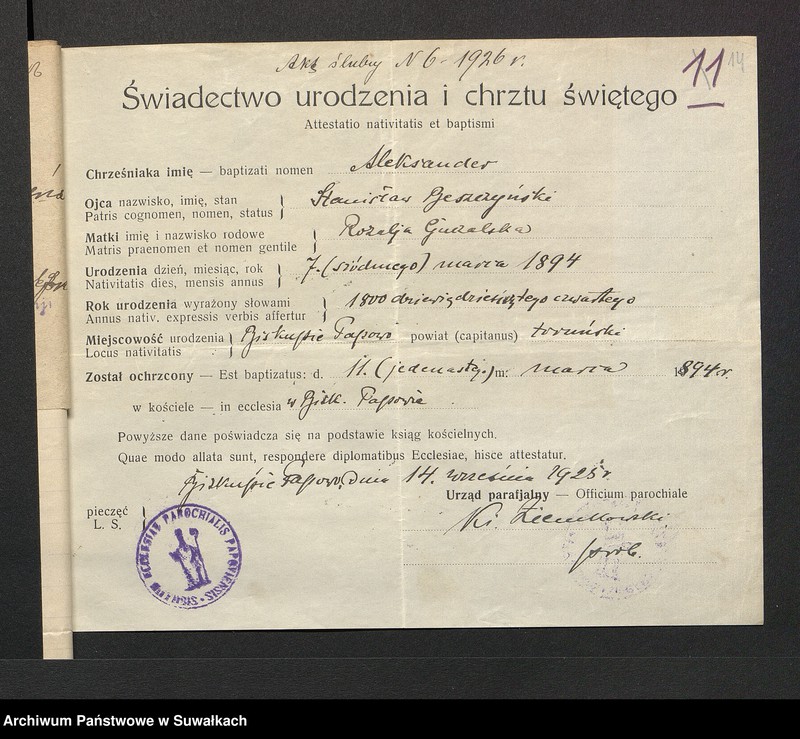 Akt ślubny N 6 - 1926 r.
11
14
Świadectwo urodzenia i chrztu świętego
Attestatio nativitatis et baptismi
Chrześniaka imię — baptizati nomen Aleksander
Ojca nazwisko, imię, stan
Patris cognomen, nomen, status Stanisław
Matki imię i nazwisko rodowe
Matris praenomen et nomen gentile Rozalja Guzalska
Urodzenia dzień, miesiąc, rok
Nativitatis dies, mensis annus 7. (siódmego) marca 1894
Rok urodzenia wyrażony słowami
Annus nativ. expressis verbis affertur 1800 dziewięćdziesiątego czwartego
Miejscowość urodzenia
Locus nativitatis Biskupie Papowo powiat (capitanus) toruński
Został ochrzcony — Est baptizatus: d. 11. (jedenastego) m: marca 1894 r.
w kościele — in ecclesia w Bisk. Papowie
Powyższe dane poświadcza się na podstawie ksiąg kościelnych.
Quae modo allata sunt, respondere diplomatibus Ecclesiae, hisce attestatur.
Biskupie Papowo, dnia 14. września 1925 r.
Urząd parafjalny — Officium parochiale
pieczęć
L. S.
Ks.
prob.
ECCLESIAE PAROCHIALIS PAPOVIENSIS
Archiwum Państwowe w Suwałkach